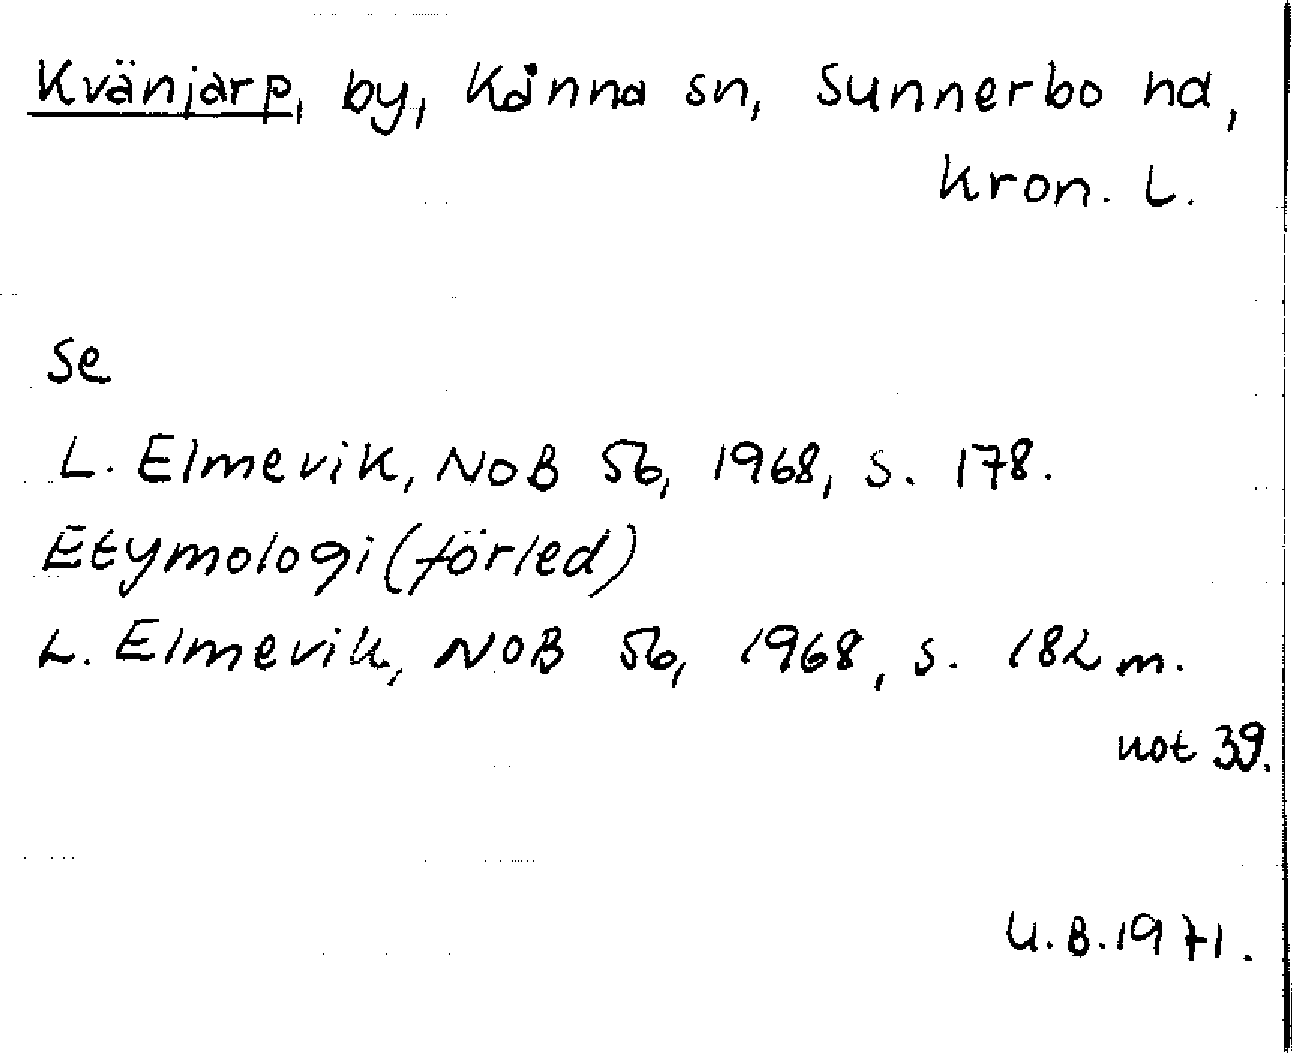 Kvänjarp, by, Kånna sn, Sunnerbo hd,
Kron. L.
Se
L. Elmevik, NoB 56, 1968, s. 178.
Etymologi (förled)
L. Elmevik, NoB 56, 1968, s. 182 m.
not 39.
U.B. 1971.